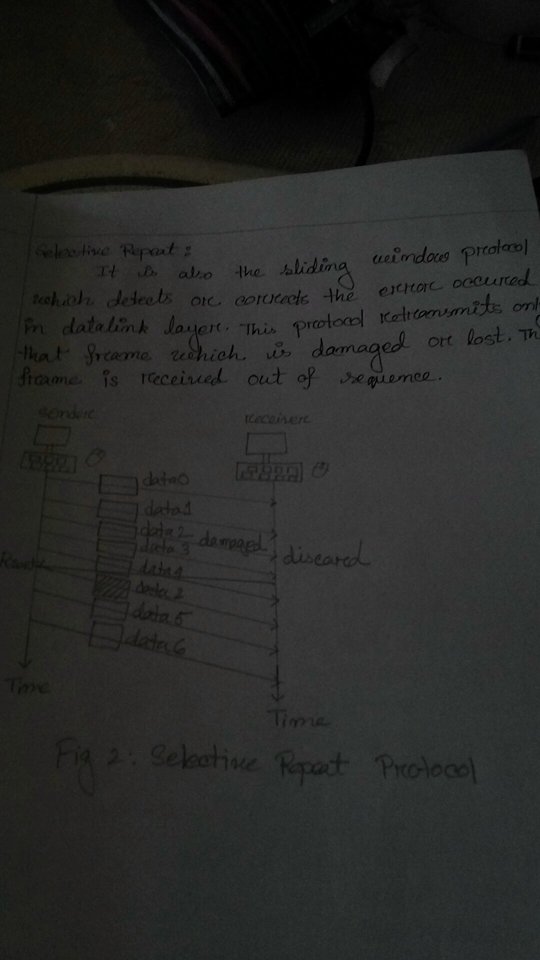 Selective Repeat:
It is also the sliding window protocol
which detects or corrects the error occured
in datalink layer. This protocol retransmits onl
that frame which is damaged or lost. Th
frame is received out of sequence.
sender
receiver
data0
data1
data2 damaged
data3
discared
data4
data2
data5
data6
Time
Time
Fig 2: Selective Repeat Protocol